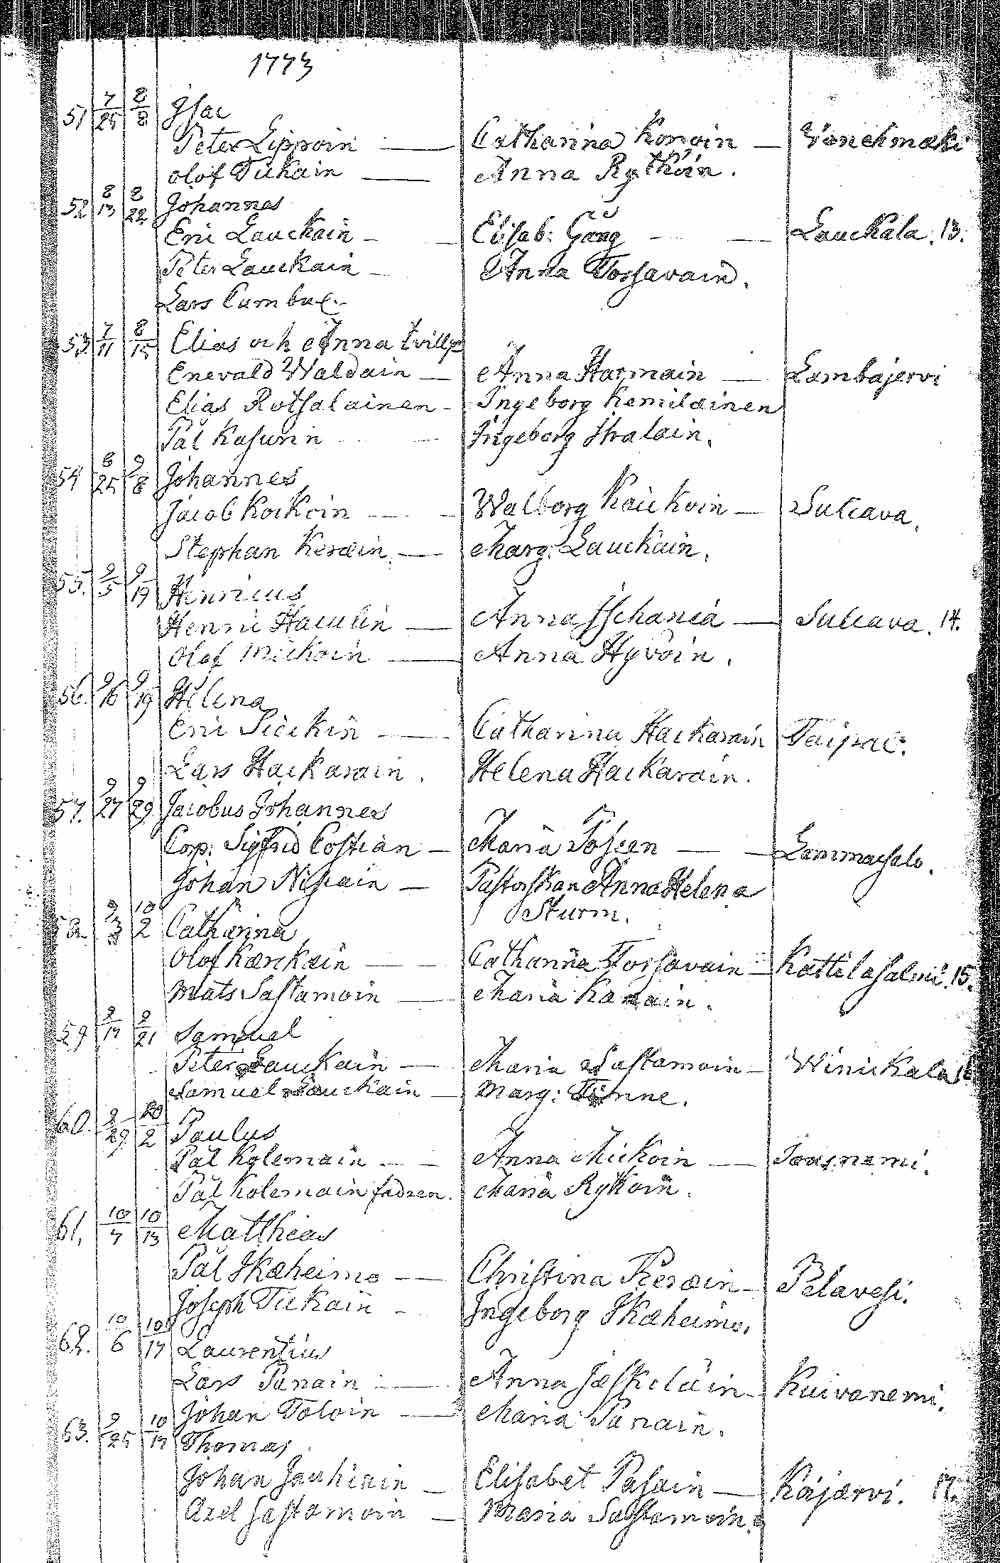 1773
51 7/25 8/8 Jsac
Peter Lippoin — Catharina Konoin — Wenehmæki
Olof Tickain — Anna Rythöin.
52 8/13 8/22 Johannes
Eric Lauckain — Elisab: Gång — Lauckala. 13.
Peter Lauckain — Anna Torsavain.
Lars
53. 7/11 8/15 Elias och Anna tvill
Enevald Waldain — Anna Harmain — Lambajervi
Elias Rotsalainen — Ingeborg Kemiläinen
Pål Kasurin — Ingeborg Ihalain.
54 8/25 9/8 Johannes
Jacob Koikoin — Walborg Kaickoin — Sulcava.
Stephan Keräin — Marg: Lauckain.
55. 9/5 9/19 Henricus
Henric Haculin — Anna — Sulcava. 14.
Olof Mickoin — Anna Hyvöin.
56. 9/16 9/19 Helena
Eric — Catharina Hackarain Taipale.
Lars Hackarain. Helena Hackarain.
57. 9/27 9/29 Jacobus Johannes
Corp: Sigfrid Costian — Maria — Lammasalo.
Johan — Pastorskan Anna Helena
Sturm.
58 10/2 Catharina
Olof Kærckäin — Catharina Torsavain — Kattilasalmi. 15.
Mats Sastamoin — Maria
59 9/17 9/21 Samuel
Peter Lauckain — Maria Sastamoin — Winickala
Samuel Lauckain — Marg:
60. 9/29 10/2 Paulus
Pål Kolemain — Anna Mickoin —
Pål Kolemain fadren. Maria Rykoin.
61. 10/7 10/13 Matthias
Pål Skæheimo — Christina Keræin — Pelavesi.
Joseph Tickain — Ingeborg Skæheimo.
62. 10/6 10/17 Laurentius
Lars Panain — Anna Jæskeläin — Kuivanemi.
Johan Toloin — Maria Panain.
63. 9/25 10/17 Thomas
Johan Jauhiain — Elisabet Pasain — Käjærvi. 17.
Axel Sastamoin — Maria Sastamoin.